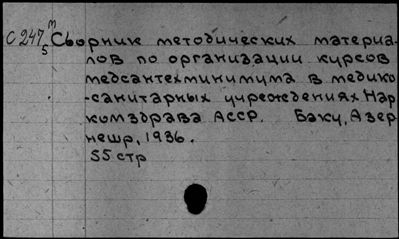 м
С 247 Сборник методических материа-
5
лов по организации курсов
медсантехминимума в медико
-санитарных учреждениях Нар
комздрава АССР. Баку, Азер
нешр, 1936.
55 стр